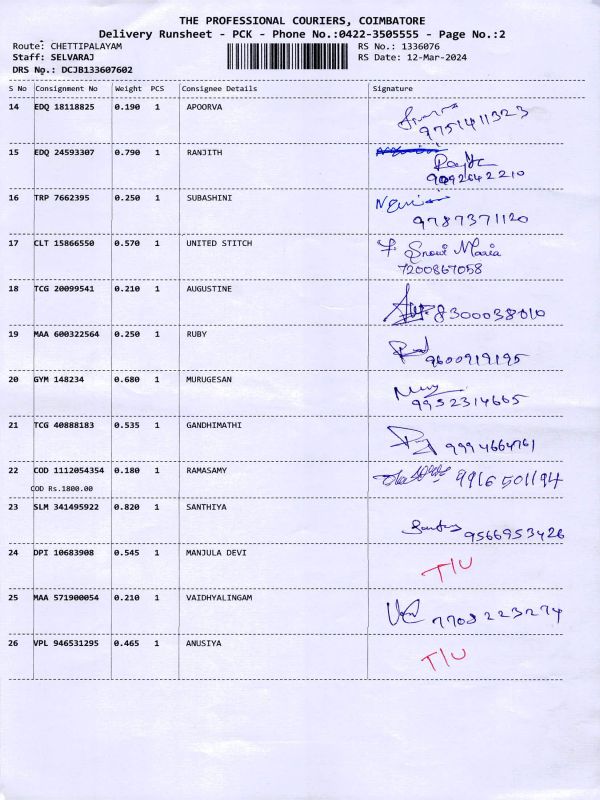 THE PROFESSIONAL COURIERS, COIMBATORE
Delivery Runsheet - PCK - Phone No.:0422-3505555 - Page No.:2
Route: CHETTIPALAYAM
RS No.: 1336076
Staff: SELVARAJ
RS Date: 12-Mar-2024
DRS No.: DCJB133607602
S No Consignment No Weight PCS Consignee Details Signature
14 EDQ 18118825 0.190 1 APOORVA
9751411323
15 EDQ 24593307 0.790 1 RANJITH
9092642210
16 TRP 7662395 0.250 1 SUBASHINI
9787371120
17 CLT 15866550 0.570 1 UNITED STITCH
F. Snowi Maria
7200867058
18 TCG 20099541 0.210 1 AUGUSTINE
8300038010
19 MAA 600322564 0.250 1 RUBY
9600919195
20 GYM 148234 0.680 1 MURUGESAN
9952314665
21 TCG 40888183 0.535 1 GANDHIMATHI
9994664761
22 COD 1112054354 0.180 1 RAMASAMY
9916501194
COD Rs.1800.00
23 SLM 341495922 0.820 1 SANTHIYA
9566953426
24 DPI 10683908 0.545 1 MANJULA DEVI
T/U
25 MAA 571900054 0.210 1 VAIDHYALINGAM
7708223274
26 VPL 946531295 0.465 1 ANUSIYA
T/U